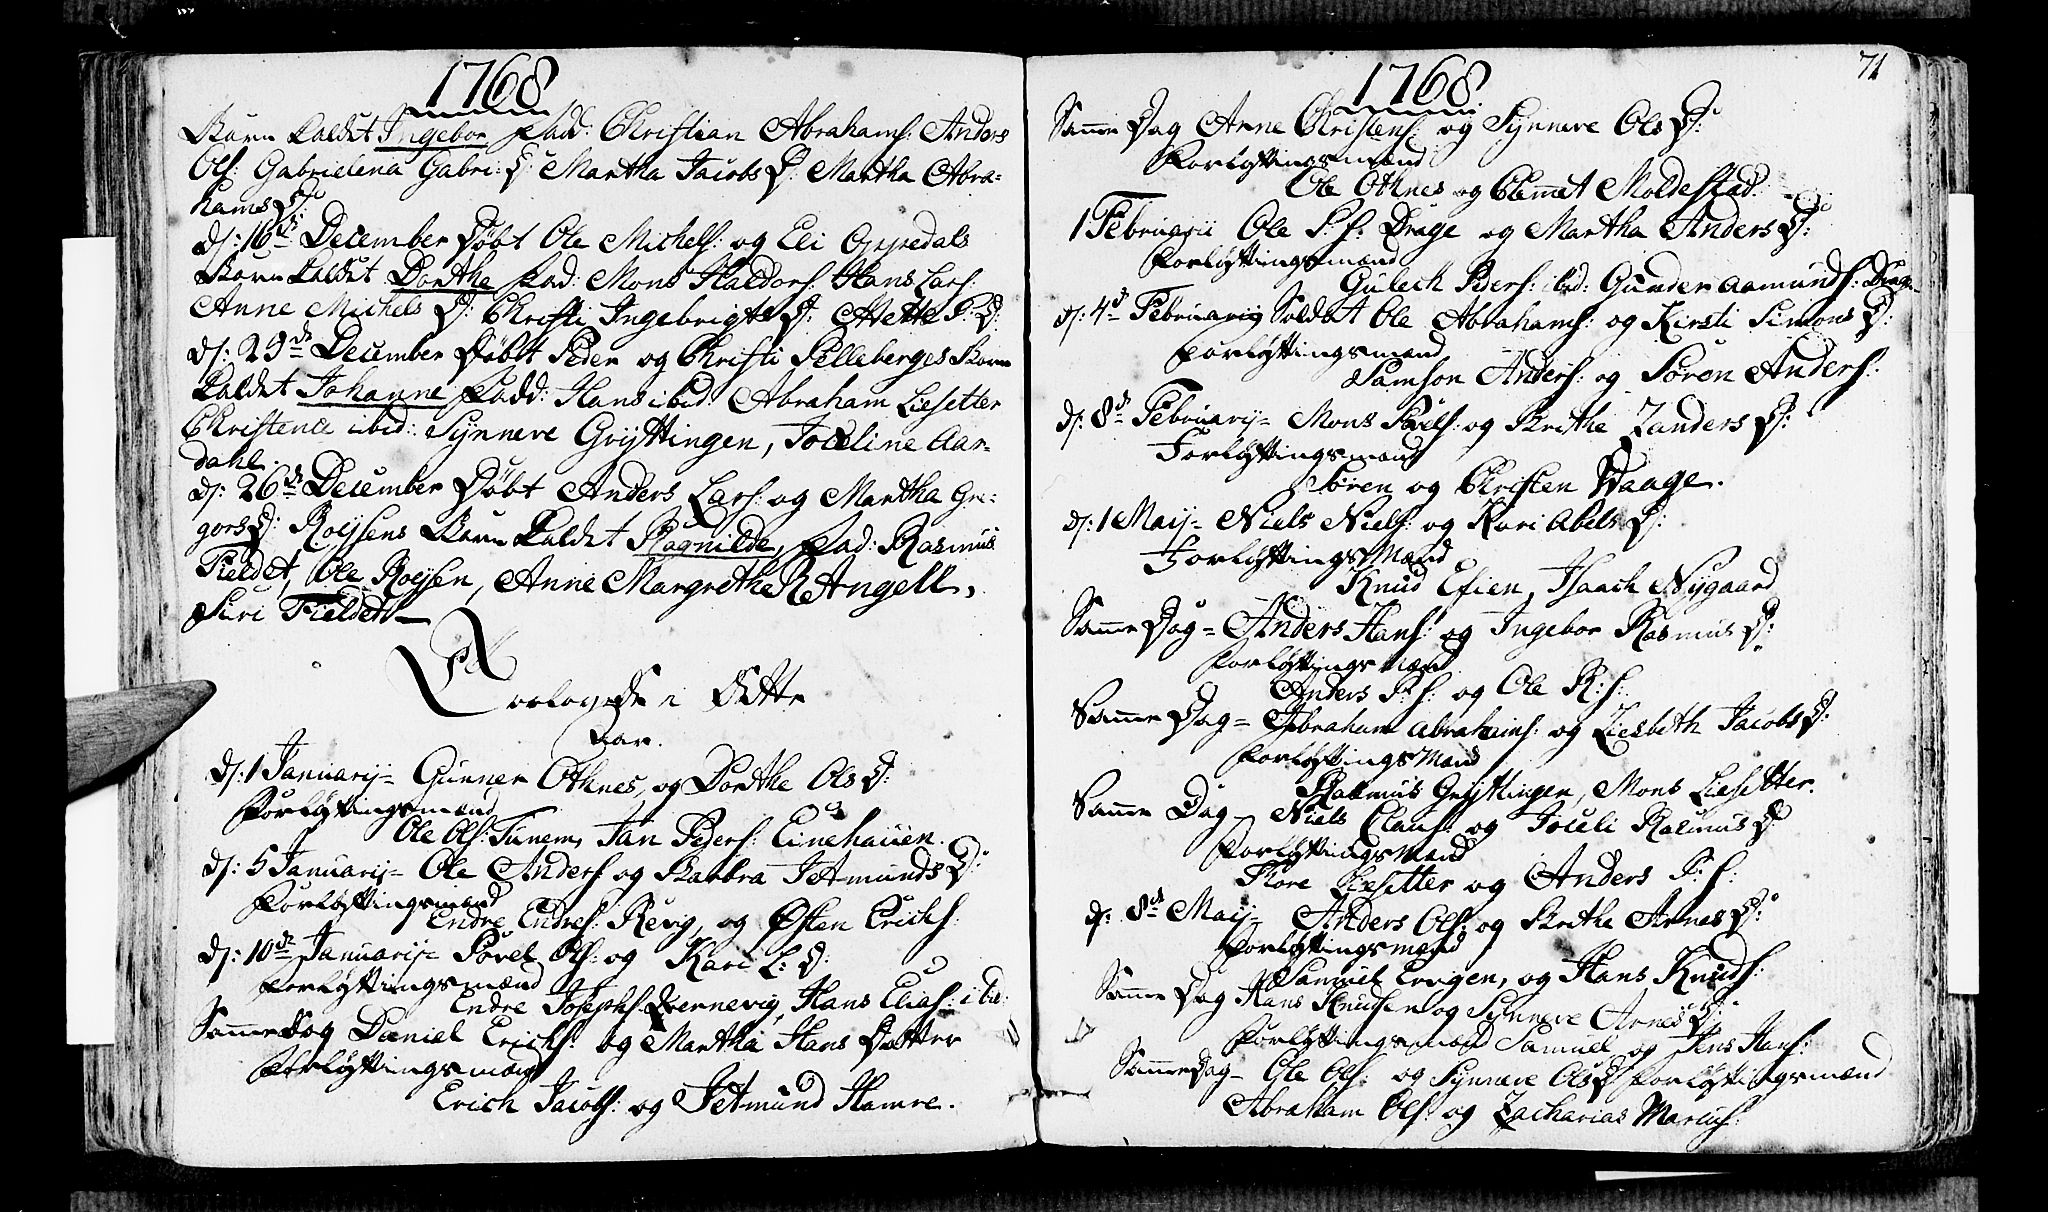 1768
Barn kaldet Ingebor fadd: Christian Abrahams: Anders
Ols: Gabrielena Gabri: D: Martha Jacobs D: Martha Abra-
hams D:
d: 16de December Døbt Ole Michels: og Eli Oppedals
Barn kaldet Dorthe fad: Mons Haldors: Hans Lars:
Anne Michels D: Christi Ingebrigts D: Anette P: D:
d: 29de December Døbt Peder og Christi Pelleberges Barn
kaldet Johanne fadd: Hans ibid: Abraham Liesetter
Christence ibid: Synneve Gryttingen, Joceline Aar-
dahl.
d: 26de December Døbt Anders Lars: og Martha Gre-
gors D: Røysens Barn kaldet Ragnilde, fad: Rasmus
Fieldet, Ole Røysen, Anne Margrethe R Angell,
Siri Fieldet
Trolovede i dette
Aar.
d: 1 Januarij= Gunner Othnes, og Dorthe Ols D:
Forløftingsmænd
Ole Ols: Tunem, Jan Peders: Einehauen.
d: 5 Januarij= Ole Anders: og Barbra Jetmunds D:
Forløftingsmænd
Endre Endres: Revig, og Østen Erichs:
d: 10de Januarij= Povel Ols: og Kari L: D:
Forløftingsmænd
Endre Josephs: Qvernevig, Hans Elias: ibid:
Samme Dag Daniel Erichs: og Martha Hans Datter
Forløftingsmænd
Erich Jacobs: og Jetmund Hamre.
71
1768
Samme Dag Arne Christens: og Synneve Ols D:
Forløftingsmænd
Ole Othnes og Clemet Moldestad.
1 Februarii Ole P: s: Drage og Martha Anders D:
Forløftingsmænd
Gulech Peders: ibid: Gunder Aamunds: Drage
d: 4de Februarij Soldat Ole Abrahams: og Kirsti Simons D:
Forløftingsmænd
Samson Anders: og Søren Anders:
d: 8de Februarij= Mons Povels: og Brithe Zanders D:
Forløftingsmænd
Søren og Christen Waage.
d: 1 Maij= Niels Niels: og Kari Abels D:
Forløftings Mænd
Knud Efien, Isaach Nygaard
Samme Dag= Anders Hans: og Ingebor Rasmus D:
Forløftings Mænd
Anders P: s: og Ole R: s:
Samme Dag= Abraham Abrahams: og Liesbeth Jacobs D:
Forløftings Mænd
Rasmus Gryttingen, Mons Liesetter.
Samme Dag Niels Claus: og Joceli Rasmus D
Forløftings Mænd
Tore Liesetter og Anders P: s:
d: 8de Maij= Anders Ols: og Brithe Arnes D:
Forløftingsmænd
Samuel Ervigen, og Hans Knuds:
Samme Dag Hans Knudsen og Synneve Arnes D:
Forløftingsmænd Samuel og Jens Hans:
Samme Dag= Ole Ols: og Synneve Ols D Forløftingsmænd
Abraham Ols: og Zacharias Marcus: